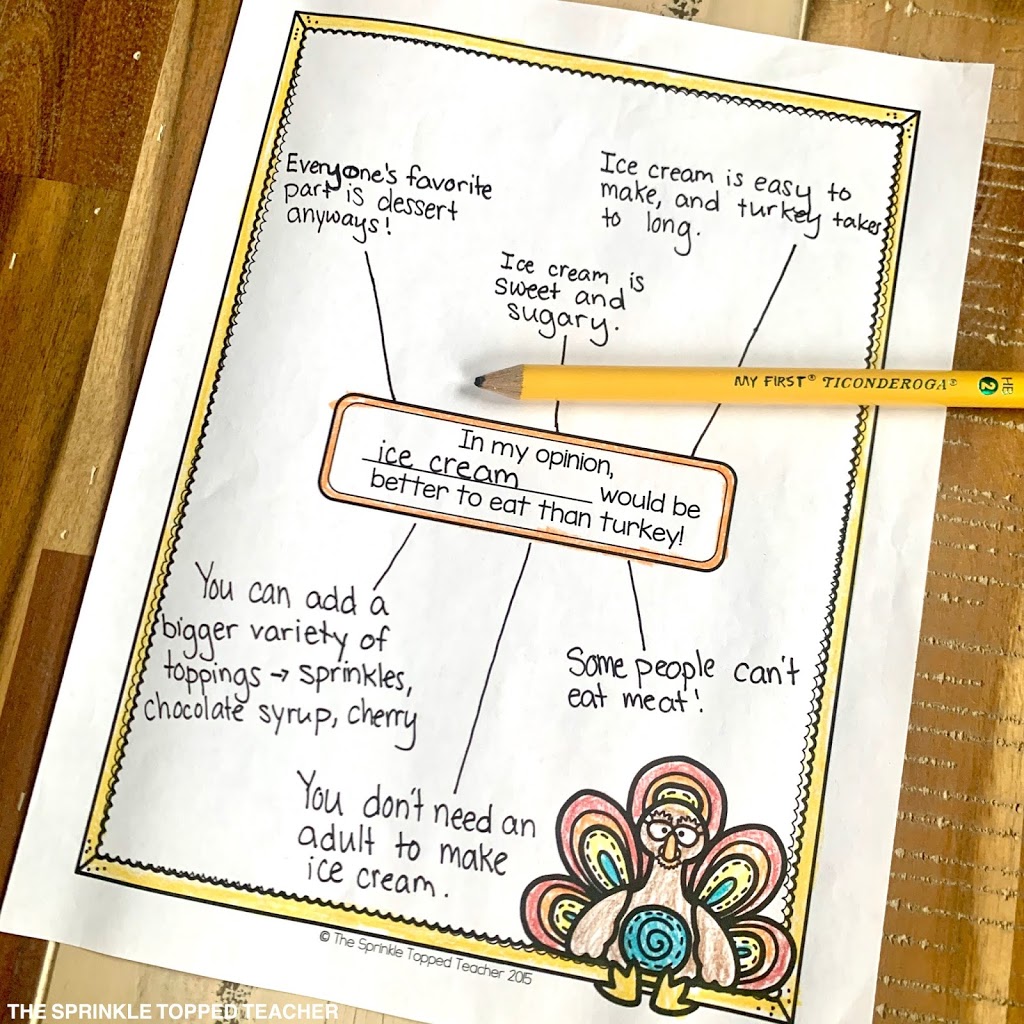 Everyone's favorite
part is dessert
anyways!
Ice cream is easy to
make, and turkey takes
to long.
Ice cream is
sweet and
sugary.
MY FIRST® TICONDEROGA®
2
HB
In my opinion,
ice cream would be
better to eat than turkey!
You can add a
bigger variety of
toppings → sprinkles,
chocolate syrup, cherry
Some people can't
eat meat!
You don't need an
adult to make
ice cream.
© The Sprinkle Topped Teacher 2015
THE SPRINKLE TOPPED TEACHER